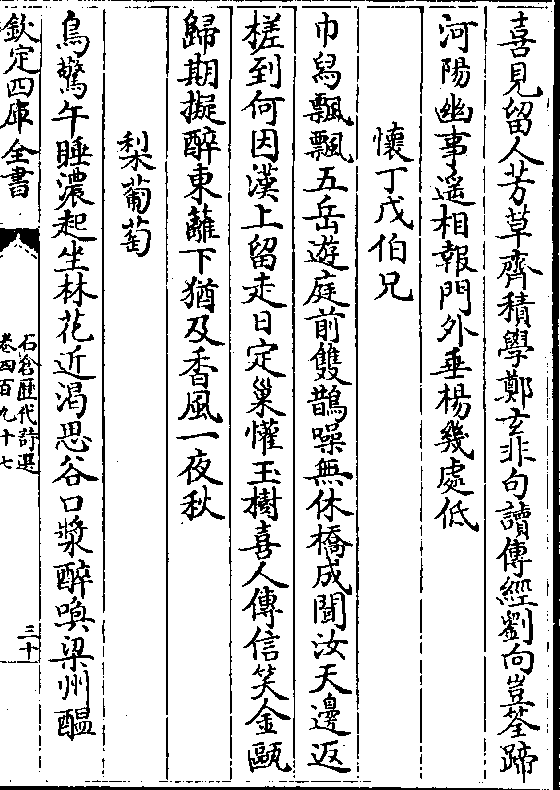 喜見留人芳草齊積學鄭玄非句讀傳經劉向豈筌蹄
河陽幽事遥相報門外垂楊幾處低
懷丁戊伯兄
巾舄飄飄五岳遊庭前雙鵲噪無休橋成聞汝天邊返
槎到何因漢上留走日定巢懽玉樹喜人傳信笑金甌
歸期擬醉東蘺下猶及香風一夜秋
梨葡萄
鳥驚午睡濃起坐林花近渴思谷口漿醉嗅梁州醖
欽定四庫全書
石倉歴代詩選
卷四百九十七
三十